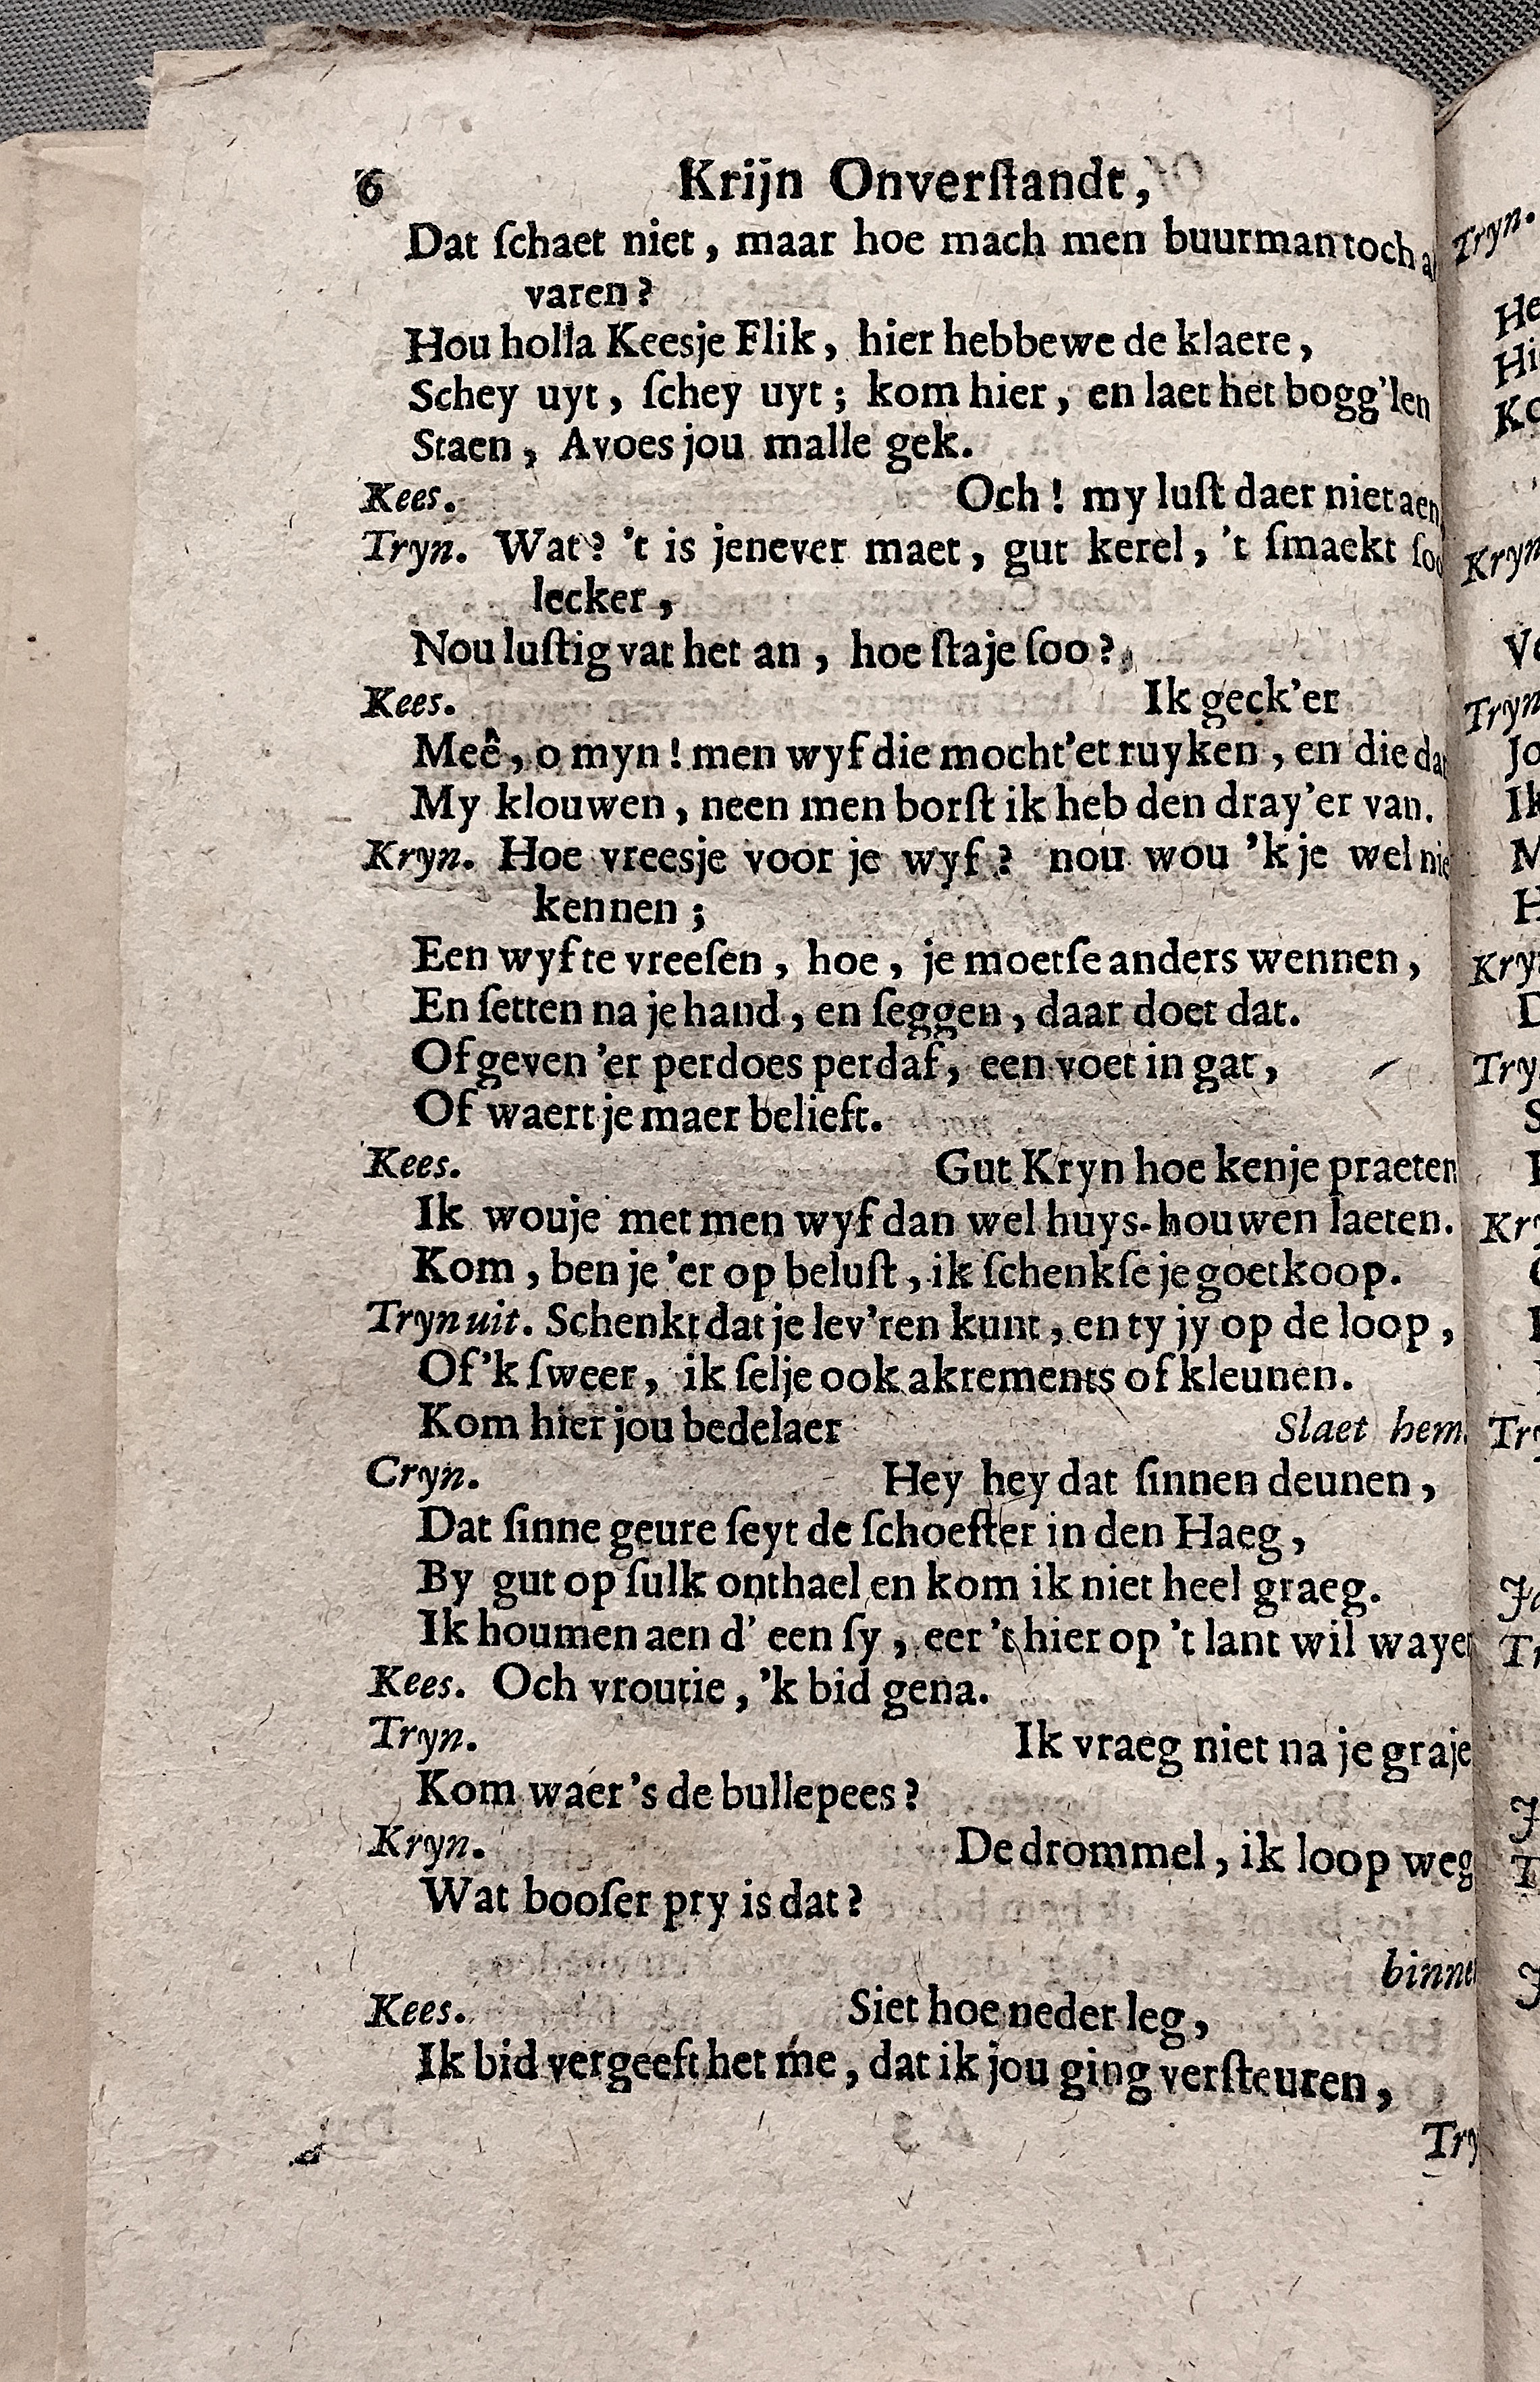 6 Krijn Onverſtandt,
Dat ſchaet niet, maar hoe mach men buurman toch
varen?
Hou holla Keesje Flik, hier hebbewe de klaere,
Schey uyt, ſchey uyt; kom hier, en laet het bogg'len
Staen, Avoes jou malle gek.
Kees. Och! my luſt daer niet aen
Tryn. Wat? 't is jenever maet, gut kerel, 't ſmaekt
lecker,
Nou luſtig vat het an, hoe ſtaje ſoo?
Kees. Ik geck'er
Meê, o myn! men wyf die mocht'et ruyken, en die
My klouwen, neen men borſt ik heb den dray'er van.
Kryn. Hoe vreesje voor je wyf? nou wou 'k je wel
kennen;
Een wyf te vreeſen, hoe, je moetſe anders wennen,
En ſetten na je hand, en ſeggen, daar doet dat.
Of geven 'er perdoes perdaf, een voet in gat,
Of waert je maer belieft.
Kees. Gut Kryn hoe kenje praeten
Ik wouje met men wyf dan wel huys-houwen laeten.
Kom, ben je 'er op beluſt, ik ſchenkſe je goetkoop.
Tryn uit. Schenkt dat je lev'ren kunt, en ty jy op de loop,
Of 'k ſweer, ik ſelje ook akrements of kleunen.
Kom hier jou bedelaer Slaet hem.
Cryn. Hey hey dat ſinnen deunen,
Dat ſinne geure ſeyt de ſchoeſter in den Haeg,
By gut op ſulk onthael en kom ik niet heel graeg.
Ik hou men aen d' een ſy, eer 't hier op 't lant wil
Kees. Och vroutie, 'k bid gena.
Tryn. Ik vraeg niet na je
Kom waer's de bullepees?
Kryn. De drommel, ik loop weg
Wat booſer pry is dat?
Kees. Siet hoe neder leg,
Ik bid vergeeft het me, dat ik jou ging verſteuren,
Tryn.
He
Hi